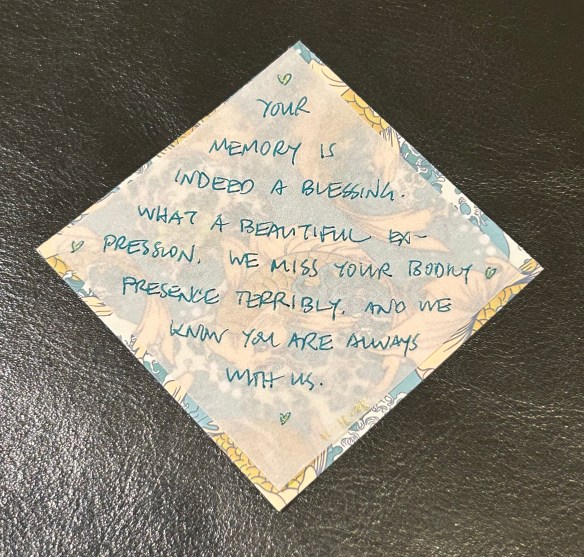 YOUR
MEMORY IS
INDEED A BLESSING.
WHAT A BEAUTIFUL EX-
PRESSION. WE MISS YOUR BODILY
PRESENCE TERRIBLY. AND WE
KNOW YOU ARE ALWAYS
WITH US.